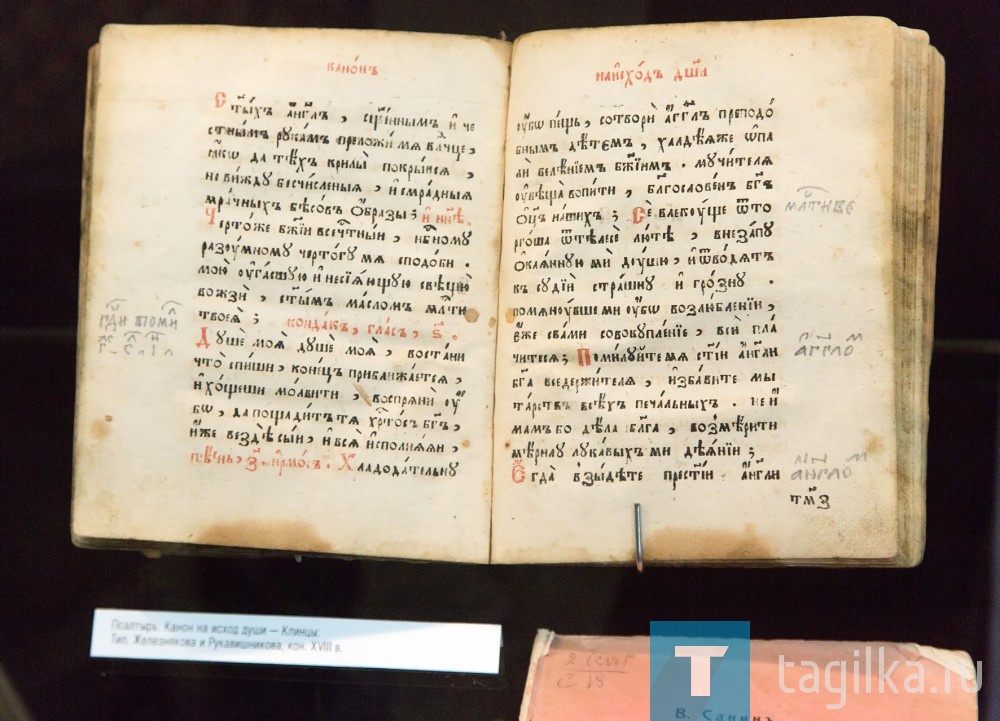 канѡ́нъ
ст҃ы́хъ а҆́гг҃лъ, сщ҃е́ннымъ и҆ че
стны́мъ рꙋка́мъ преложи́ мѧ влⷣчце,
ꙗ҆́кѡ да тѣ́хъ крилы̀ покры́всѧ,
не ви́ждꙋ безчи́сленыѧ, и҆ смра́дныѧ
мра́чныхъ бѣсѡ́въ ѻ҆́бразы; и҆ ны́нѣ.
Черто́же бж҃їи всечⷭтны́и, нбⷭномꙋ
разꙋ́мномꙋ черто́гꙋ мѧ сподо́би.
мою̀ ᲂу҆га́сшꙋю и҆ несїѧ́ющꙋю свѣщꙋ̀
вожзѝ, ст҃ы́мъ ма́сломъ млⷭти
твоеѧ̀; конда́къ, гла́съ, ѕ҃.
Дꙋшѐ моѧ̀ дꙋшѐ моѧ̀, воста́ни
что̀ спи́ши, коне́цъ приближа́етсѧ,
и҆ хо́щеши мо́лвити, воспрѧнѝ ᲂу҆̀
бѡ, да пощади́тъ тѧ хрⷭто́съ бг҃ъ,
и҆́же вездѣ̀ сы́и, и҆ всѧ̀ и҆сполнѧ́ѧи,
пѣ́снь, з҃. і҆рмо́съ. Хладода́тельнꙋ
гдⷭи поми
на и҆схо́дъ дш҃и
ᲂу҆́бѡ пе́щь, сотворѝ а҆́гг҃лъ преподо́
бнымъ дѣ́темъ, халдѣ́ѧже ѡ҆па
лѝ велѣ́нїемъ бж҃їимъ. мꙋчи́телѧ
ᲂу҆вѣща̀ вопи́ти, блгⷭослове́нъ бг҃ъ
ѻ҆ц҃ъ на́шихъ; Сѐ влекꙋ́ще ѿто
рго́ша ѿ тѣлесѐ лю́тѣ, внеза́пꙋ
ѻ҆каѧ́ннꙋю мѝ дꙋ́шꙋ, и҆ ѿво́дѧтъ
къ сꙋдїѝ стра́шнꙋ и҆ гро́знꙋ.
помѧнꙋ́вше ми ᲂу҆́бѡ возлю́бленїи,
є҆́же сва́ми совокꙋпле́нїе, всѝ пла́
читесѧ; Поми́лꙋйте мѧ ст҃і́и а҆́нг҃ли
бг҃а вседержи́телѧ, и҆зба́вите мы
та́рствъ всѣ́хъ печа́льныхъ. не и҆̀
ма́мъ бо дѣ́ла бл҃га, возмѣ́рити
мѣри́лꙋ лꙋка́выхъ мѝ дѣѧ́нїи;
Е҆гда̀ взы́дѣте престⷭі́и а҆́нг҃ли
тм҃з
млⷭтиве
англо
англо
Псалтырь. Канон на исход души — Клинцы:
Тип. Железнякова и Рукавишникова, кон. XVIII в.
В. Санинъ
T tagilka.ru